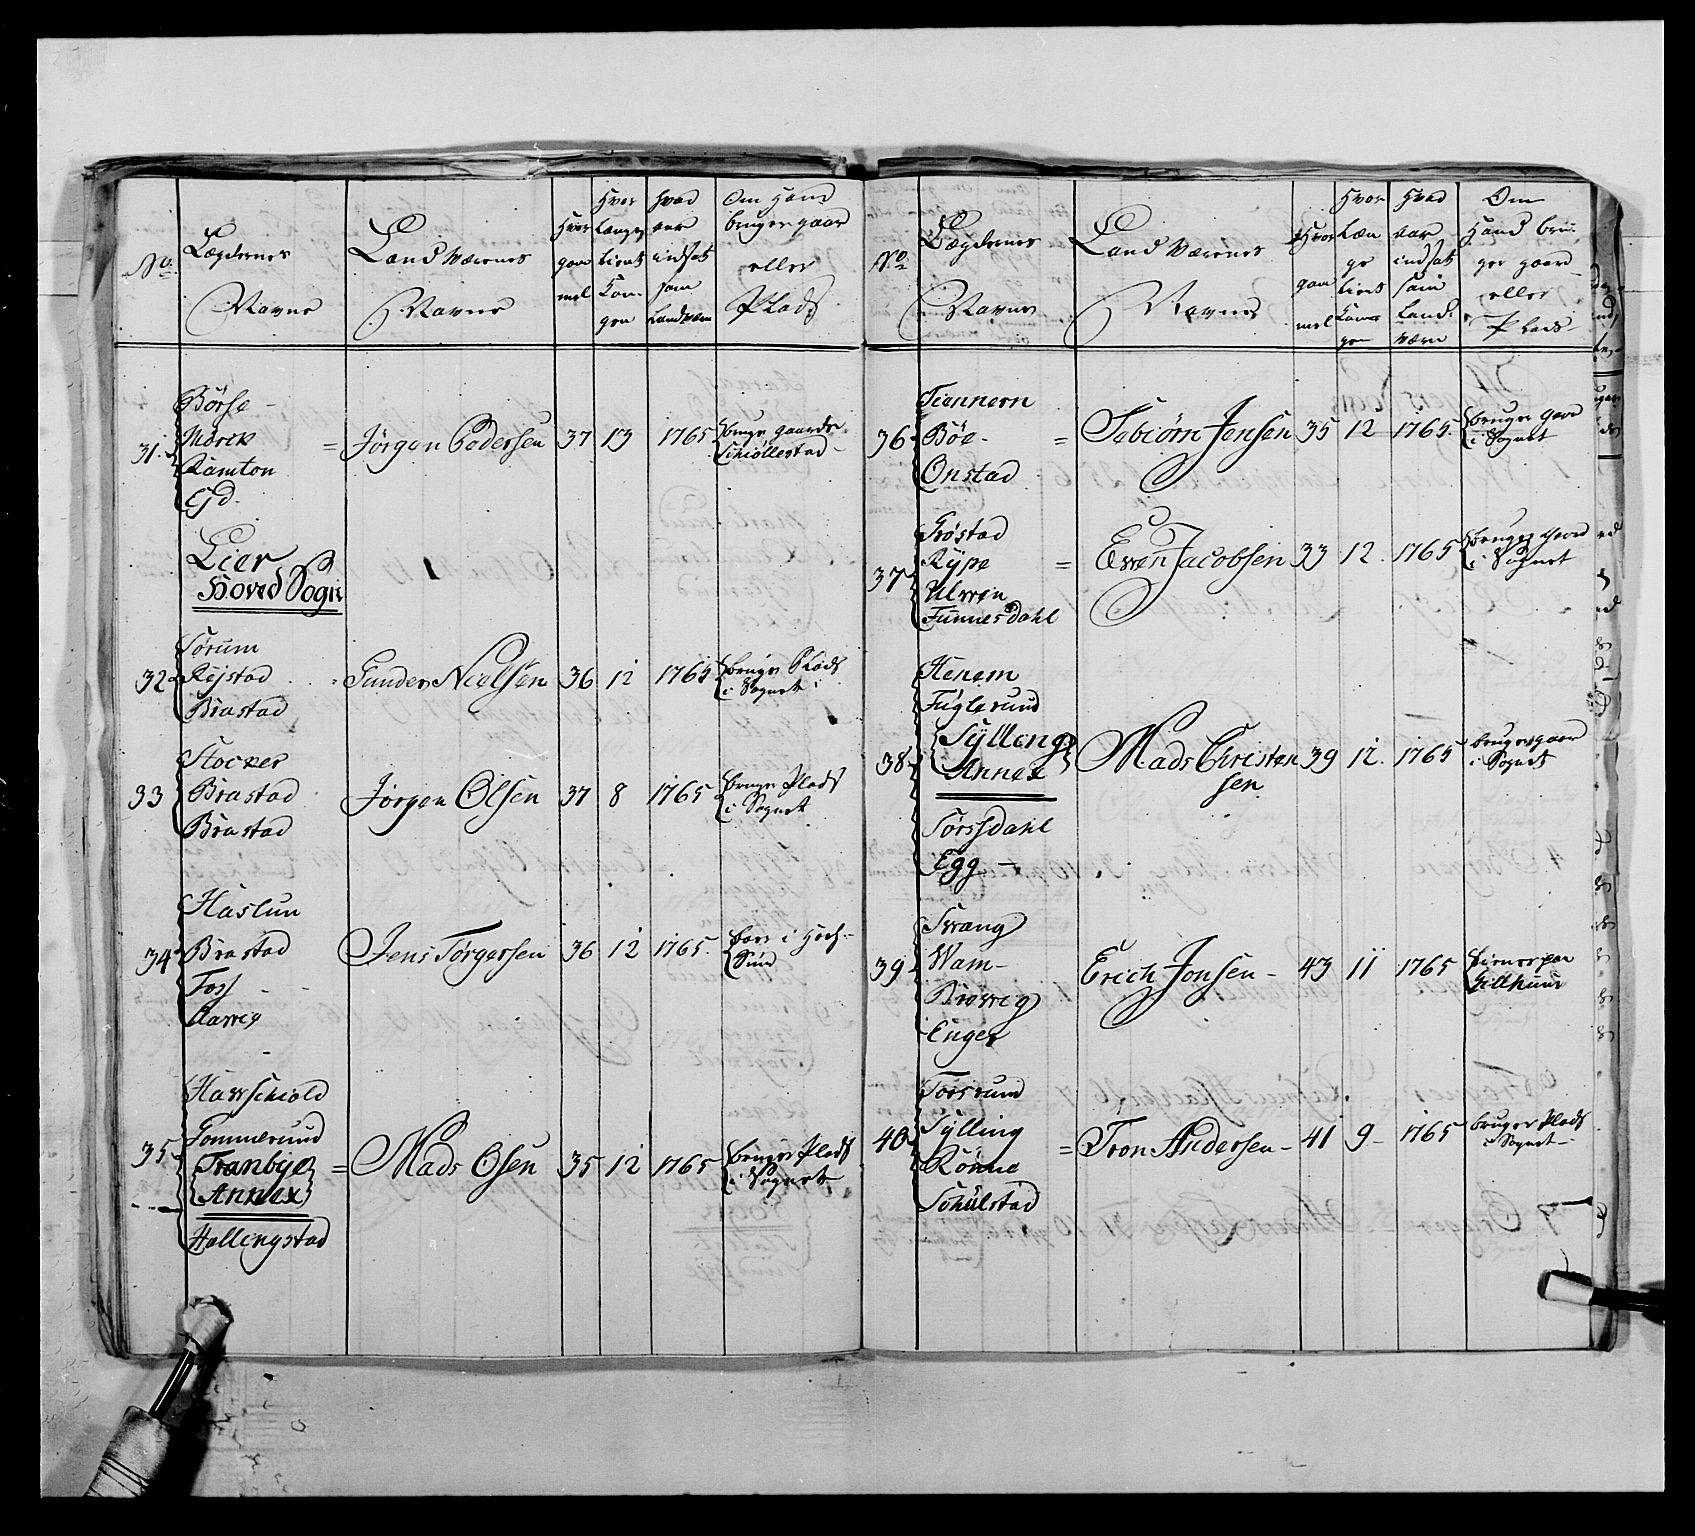 No.
Lægdernes
Navne
Land Værenes
Navne
Hvor
gam
mel
Hvor
længe
tient
Kon-
gen
hvad
aar
indsat
som
Landværn
Om Hand
bruger gaar
eller
Plads
31.
Börse -
Mörck
Ramton
Ejd -
= Jörgen Pedersen 37 13 1765
bruger gaarde
Schiöllestad -
Lier
Hoved Sogn
32
Sörum
Rejstad
Brastad
Gunder Nielsen 36 12 1765
bruger Plads
i Sognet
33
Stocker
Brastad
Brastad
Jörgen Olsen 37 8 1765
bruger Plads
i Sognet
34
Haslun
Brastad
Foss
Jens Törgersen 36 12 1765.
boer i
35
Hawschiold
Gommerund
Tranbye
Annex
Hallingstad
= Mads Olsen 35 12 1765
bruger Plads
i Sognet
No.
Lægdernes
Navne
Land Værenes
Navnes
Hvor
gam
mel
Hvor
læn
ge
tient
Kon-
gen
Hvad
aar
indsat
som
Land
Værn
Om
Hand bru-
ger gaard
eller
Plads
36
Tiennern
Böe -
Onstad
= Tebiörn Jensen 35 12 1765.
bruger Gard
i Sognet
37
Gröstad
Rype
Ulwen
Tunnesdahl
= Ewen Jacobsen 33 12. 1765
bruger Gard
i Sognet
38
Henem
Fuglerund
Sylleng
Annex
Torssdahl
Egg -
Mads Christen
sen
39 12. 1765
bruger gaar
i Sognet
39
Swang
Wam -
Browig
Enger
Erich Jonsen - 43 11 1765
40
Torsrund
Sylling
Rönne
Schulstad
= Tron Andersen - 41 9 - 1765
bruger Plads
i Sognet -